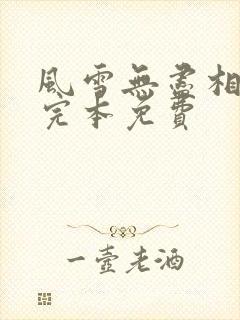 風雪無盡相
完本免費
一壺老酒